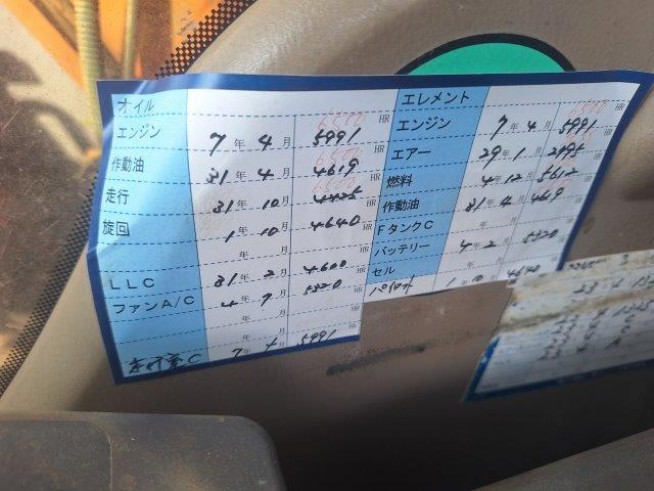 オイル
HR
エンジン 7年 4月 6500 5991 HR
作動油 31年 4月 4619 HR
走行 31年 10月 6500 4425 HR
旋回 1年 10月 4640 HR
年 月 HR
LLC 31年 2月 4600 HR
ファンA/C 4年 7月 5320 HR
年 月 HR
年 月 HR
C 7年 月 5991 HR
エレメント
HR
エンジン 7年 4月 6500 5991
エアー 29年 1月 2195
燃料 4年 12月 5612
作動油 31年 4月
FタンクC
バッテリー 4年 2月 5320
セル
パイロット 1年 10月 4640